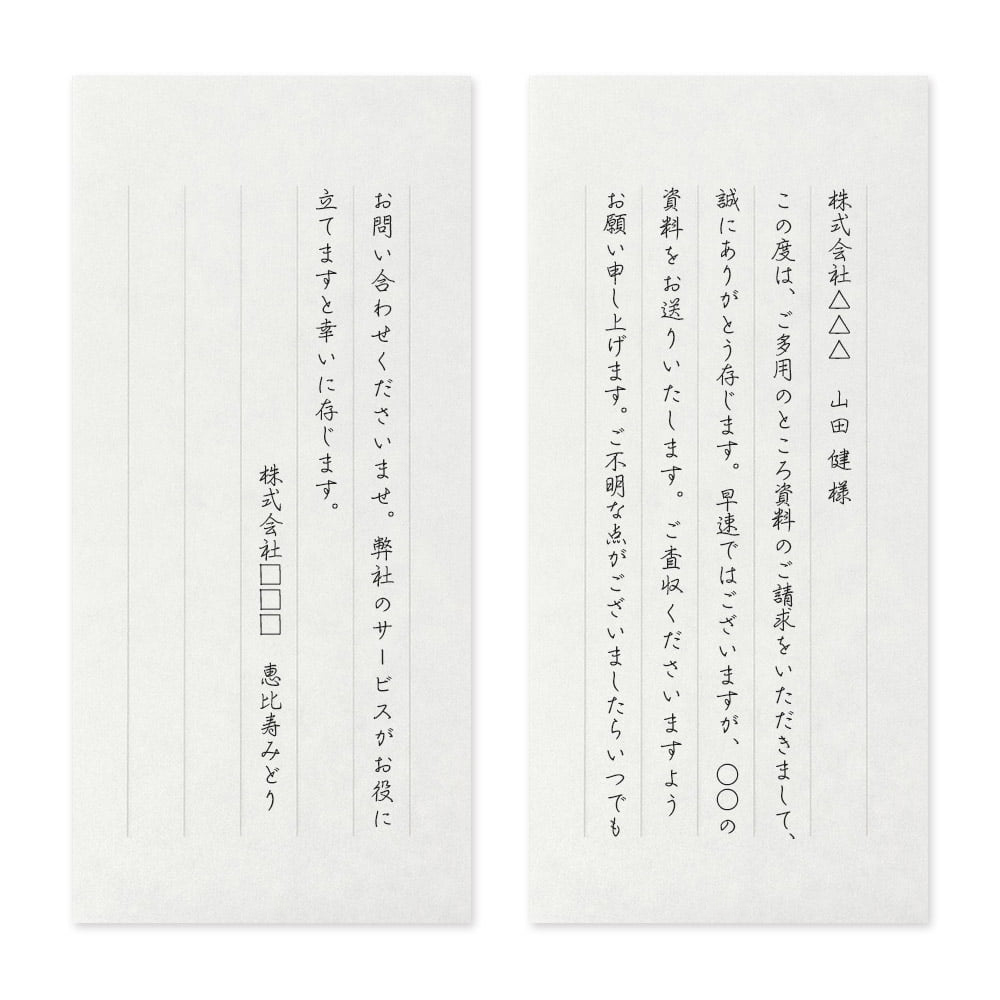 株式会社△△△　山田 健 様
この度は、ご多用のところ資料のご請求をいただきまして、
誠にありがとう存じます。早速ではございますが、〇〇の
資料をお送りいたします。ご査収くださいますよう
お願い申し上げます。ご不明な点がございましたらいつでも
お問い合わせくださいませ。弊社のサービスがお役に
立てますと幸いに存じます。
株式会社□□□　恵比寿みどり